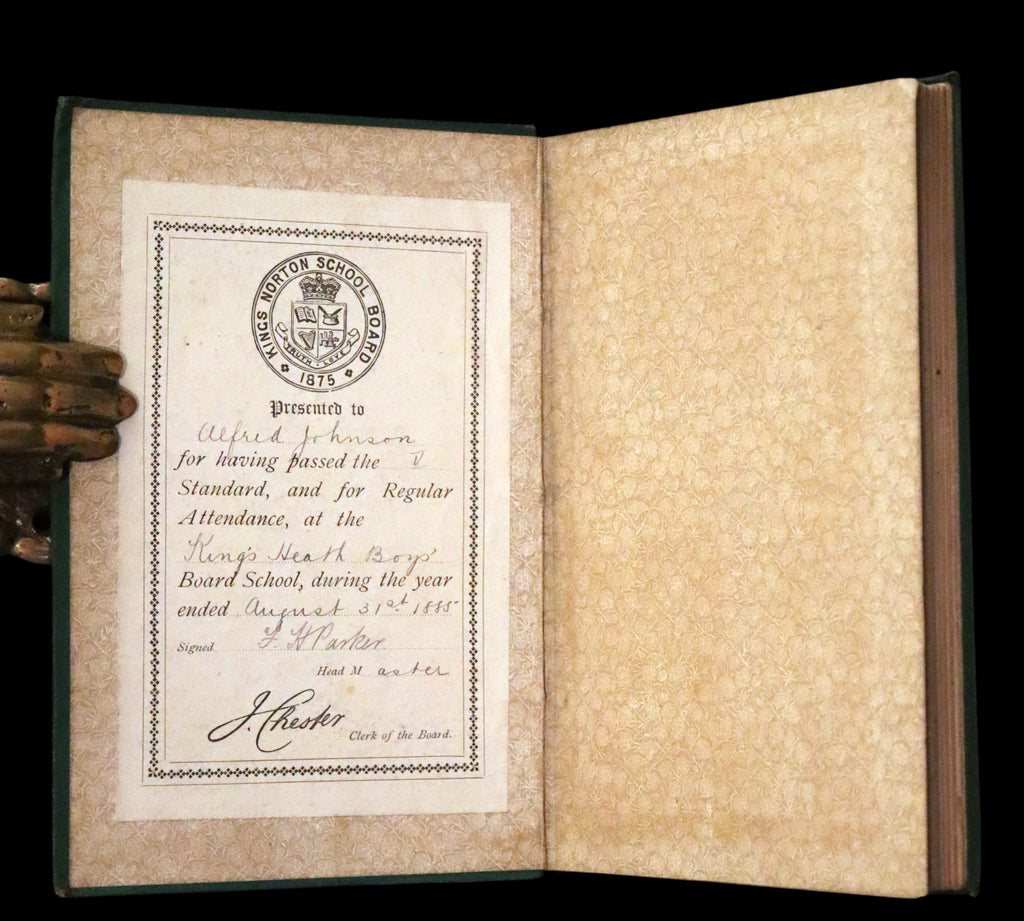 KINGS NORTON SCHOOL BOARD
TRUTH · LOVE
1875
Presented to
Alfred Johnson
for having passed the V
Standard, and for Regular
Attendance, at the
King's Heath Boys'
Board School, during the year
ended August 31st 1885
Signed F H Parker
Head Master
J. Chester
Clerk of the Board.